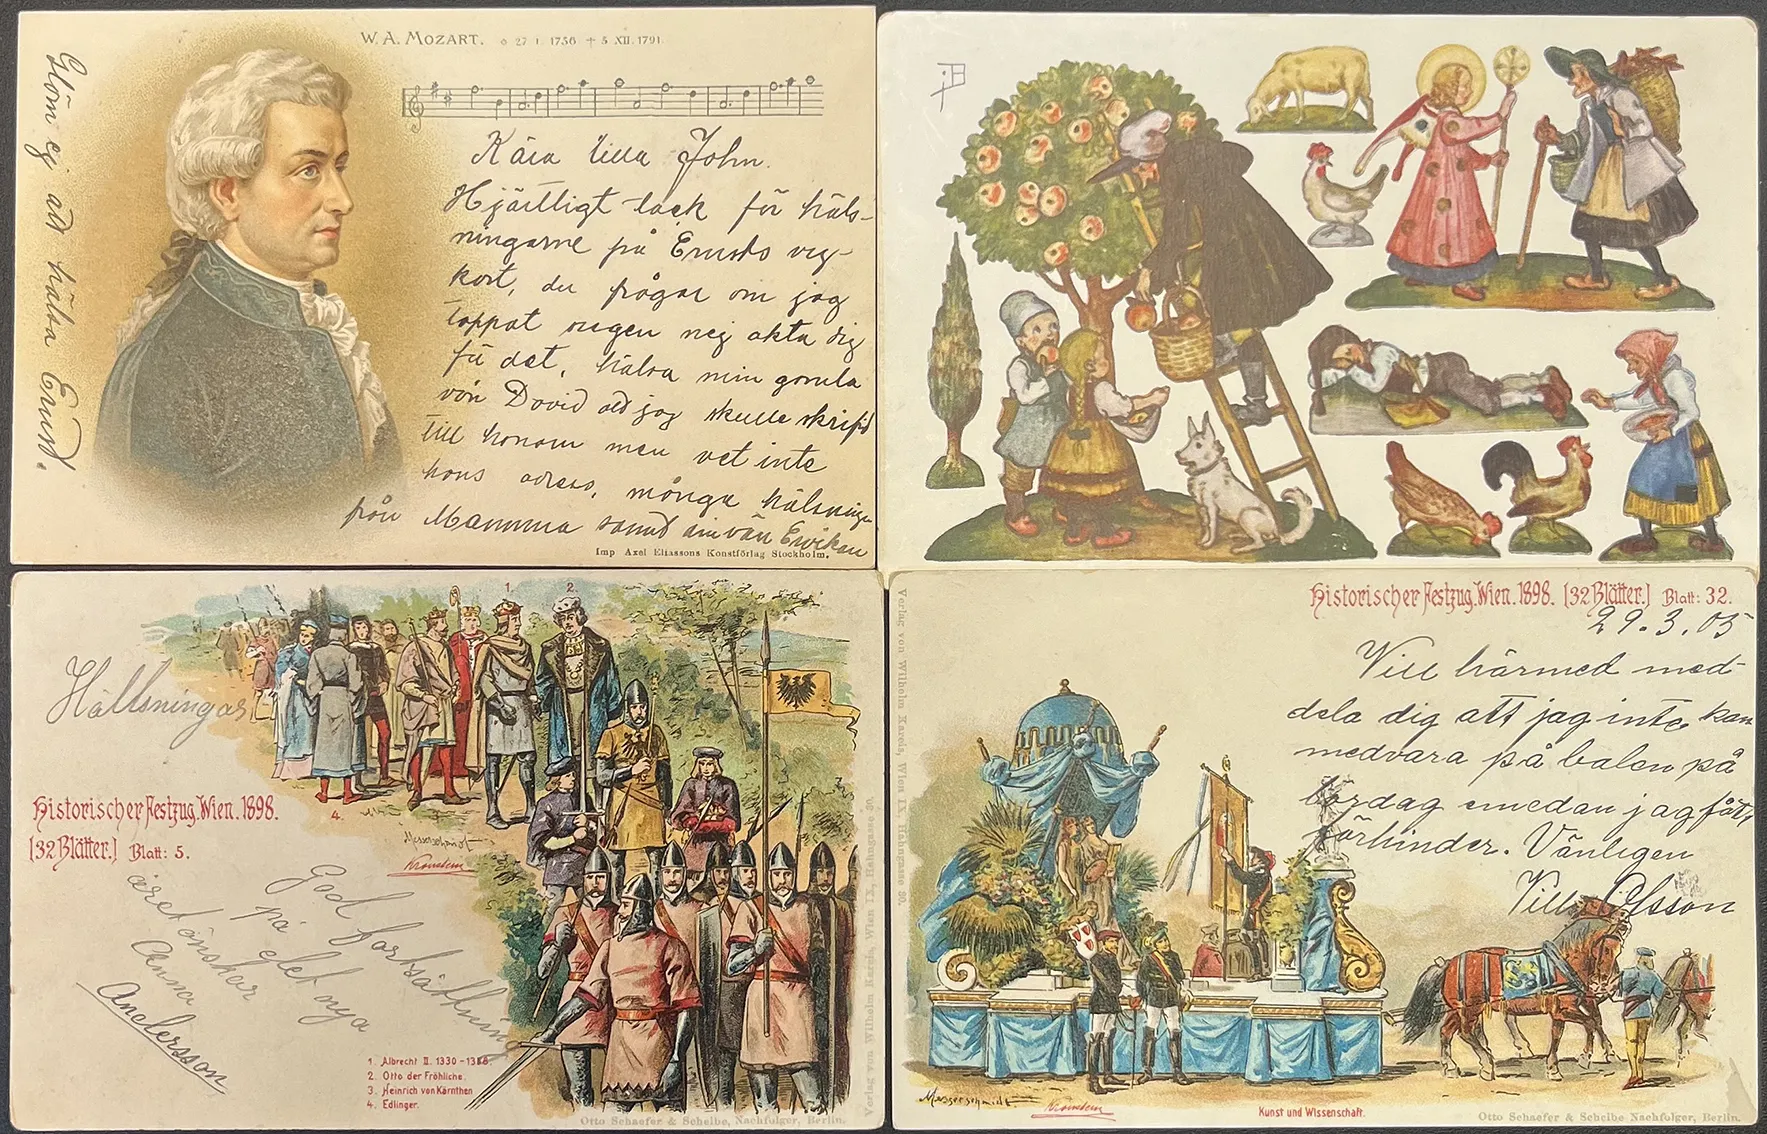 W. A. MOZART. ✧ 27 I. 1756 ✝ 5 XII. 1791.
Glöm ej att hälsa Ernst.
Kära lilla John.
Hjärtligt tack för häls-
ningarne på Ernsts vy-
kort, du frågar om jag
tappat ringen nej akta dig
för det, hälsa min gamla
vän David att jag skulle skrifvit
till honom men vet inte
hans adress, många hälsningar
från Mamma samt din vän
Imp Axel Eliassons Konstförlag Stockholm.
Hälsningar
1.
2.
4.
Historischer Festzug. Wien. 1898.
[32 Blätter.] Blatt: 5.
Messerschmidt
Kronstein
God fortsättning
på det nya
året önskar
Anna
Andersson
1. Albrecht II. 1330-1358.
2. Otto der Fröhliche.
3. Heinrich von Kärnthen
4. Edlinger.
Verlag von Wilhelm Karels, Wien IX, Hahngasse 30.
Otto Schaefer & Scheibe, Nachfolger, Berlin.
Verlag von Wilhelm Karels, Wien IX, Hahngasse 30.
Historischer Festzug. Wien. 1898. [32 Blätter.] Blatt: 32.
29.3.05
Vill härmed med-
dela dig att jag inte kan
medvara på balen på
lördag emedan jag fått
förhinder. Vänligen
Olsson
Messerschmidt
Kronstein
Kunst und Wissenschaft.
Otto Schaefer & Scheibe Nachfolger, Berlin.